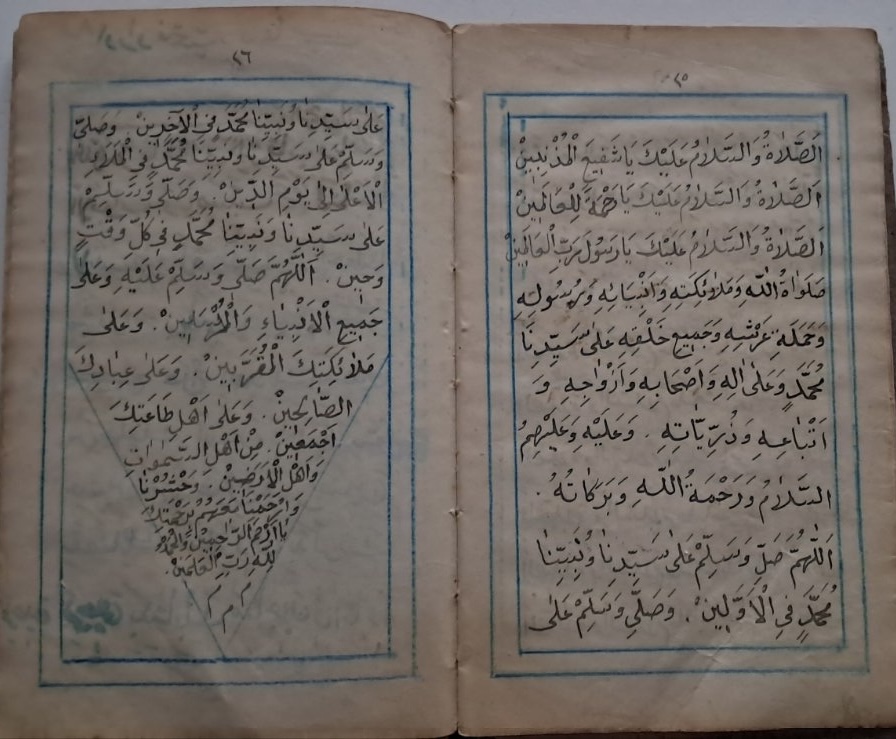 ٢٥
اَلصَّلَاةُ وَالسَّلَامُ عَلَيْكَ يَا شَفِيعَ الْمُذْنِبِينْ
اَلصَّلَاةُ وَالسَّلَامُ عَلَيْكَ يَا رَحْمَةً لِلْعَالَمِينْ
اَلصَّلَاةُ وَالسَّلَامُ عَلَيْكَ يَا رَسُولَ رَبِّ الْعَالَمِينْ
صَلَوَاةُ اللّٰهِ وَمَلَائِكَتِهِ وَاَنْبِيَائِهِ وَرُسُولِهِ
وَحَمَلَةِ عَرْشِهِ وَجَمِيعِ خَلْقِهِ عَلٰى سَيِّدِنَا
مُحَمَّدٍ وَعَلٰى اٰلِهِ وَاَصْحَابِهِ وَاَزْوَاجِهِ وَ
اَتْبَاعِهِ وَذُرِّيَّاتِهِ . وَعَلَيْهِ وَعَلَيْهِمُ
السَّلَامُ وَرَحْمَةُ اللّٰهِ وَبَرَكَاتُهُ .
اَللّٰهُمَّ صَلِّ وَسَلِّمْ عَلٰى سَيِّدِنَا وَنَبِيِّنَا
مُحَمَّدٍ فِي الْاَوَّلِينْ . وَصَلِّي وَسَلِّمْ عَلٰى
٢٦
عَلٰى سَيِّدِنَا وَنَبِيِّنَا مُحَمَّدٍ فِي الْاٰخِرِينْ . وَصَلِّى
وَسَلِّمْ عَلٰى سَيِّدِنَا وَنَبِيِّنَا مُحَمَّدٍ فِي الْمَلَاءِ
الْاَعْلٰى اِلٰى يَوْمِ الدِّينْ . وَصَلِّى وَسَلِّمْ
عَلٰى سَيِّدِنَا وَنَبِيِّنَا مُحَمَّدٍ فِي كُلِّ وَقْتٍ
وَحِينْ . اَللّٰهُمَّ صَلِّى وَسَلِّمْ عَلَيْهِ وَعَلٰى
جَمِيعِ الْاَنْبِيَاءِ وَالْمُرْسَلِينْ . وَعَلٰى
مَلَائِكَتِكَ الْمُقَرَّبِينْ . وَعَلٰى عِبَادِكَ
الصَّالِحِينْ . وَعَلٰى اَهْلِ طَاعَتِكَ
اَجْمَعِينْ . مِنْ اَهْلِ السَّمٰوَاتِ
وَاَهْلِ الْاَرَضِينْ . وَحْشُرْنَا
وَارْحَمْنَا مَعَهُمْ بِرَحْمَتِكَ
يَا اَرْحَمَ الرَّاحِمِينْ وَالْحَمْدُ
لِلّٰهِ رَبِّ الْعٰلَمِينْ .
م م م